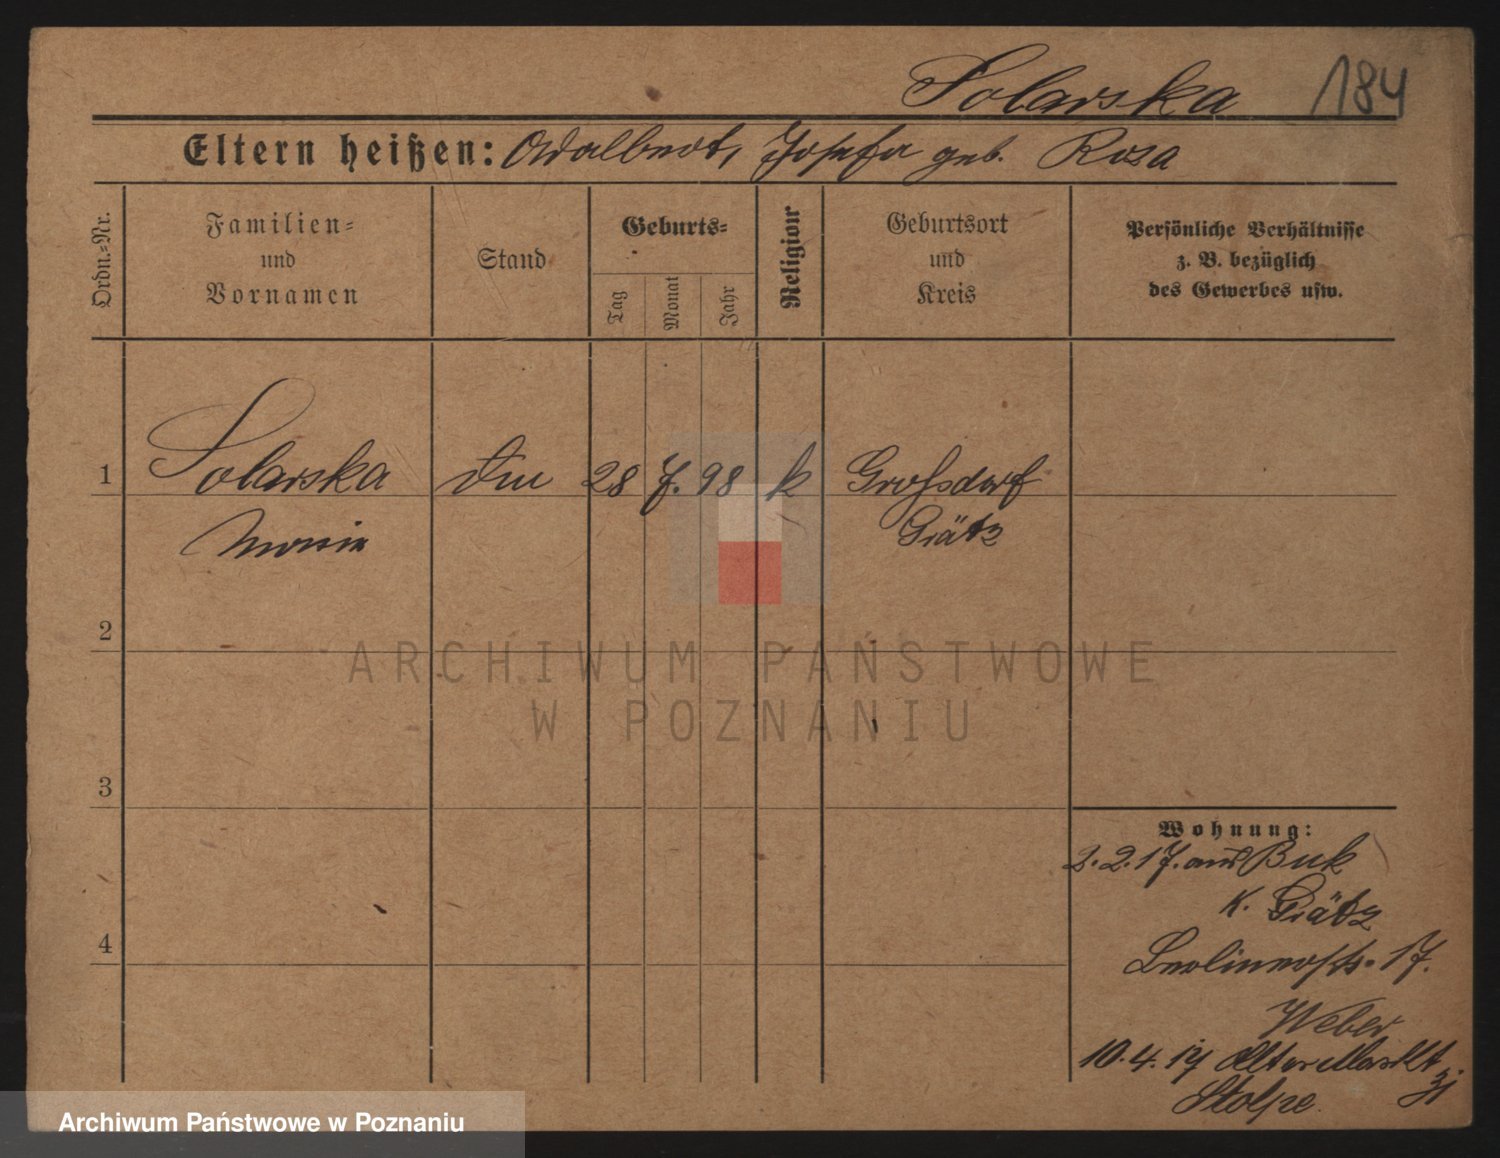 Solarska 184
Eltern heißen: Adalbert, Josefa geb. Roza
Ordn.-Nr.
Familien-
und
Vornamen
Stand
Geburts-
Tag
Monat
Jahr
Religion
Geburtsort
und
Kreis
Persönliche Verhältnisse
z. B. bezüglich
des Gewerbes usw.
1 Solarska 28 7. 98 k Großdorf
Maria Grätz
2
3
4
Wohnung:
2. 2. 17. aus Buk
K. Grätz
Berlinerstr. 17.
Weber
10. 4. 17 Alter Markt
Stolpe
ARCHIWUM PAŃSTWOWE
W POZNANIU
Archiwum Państwowe w Poznaniu